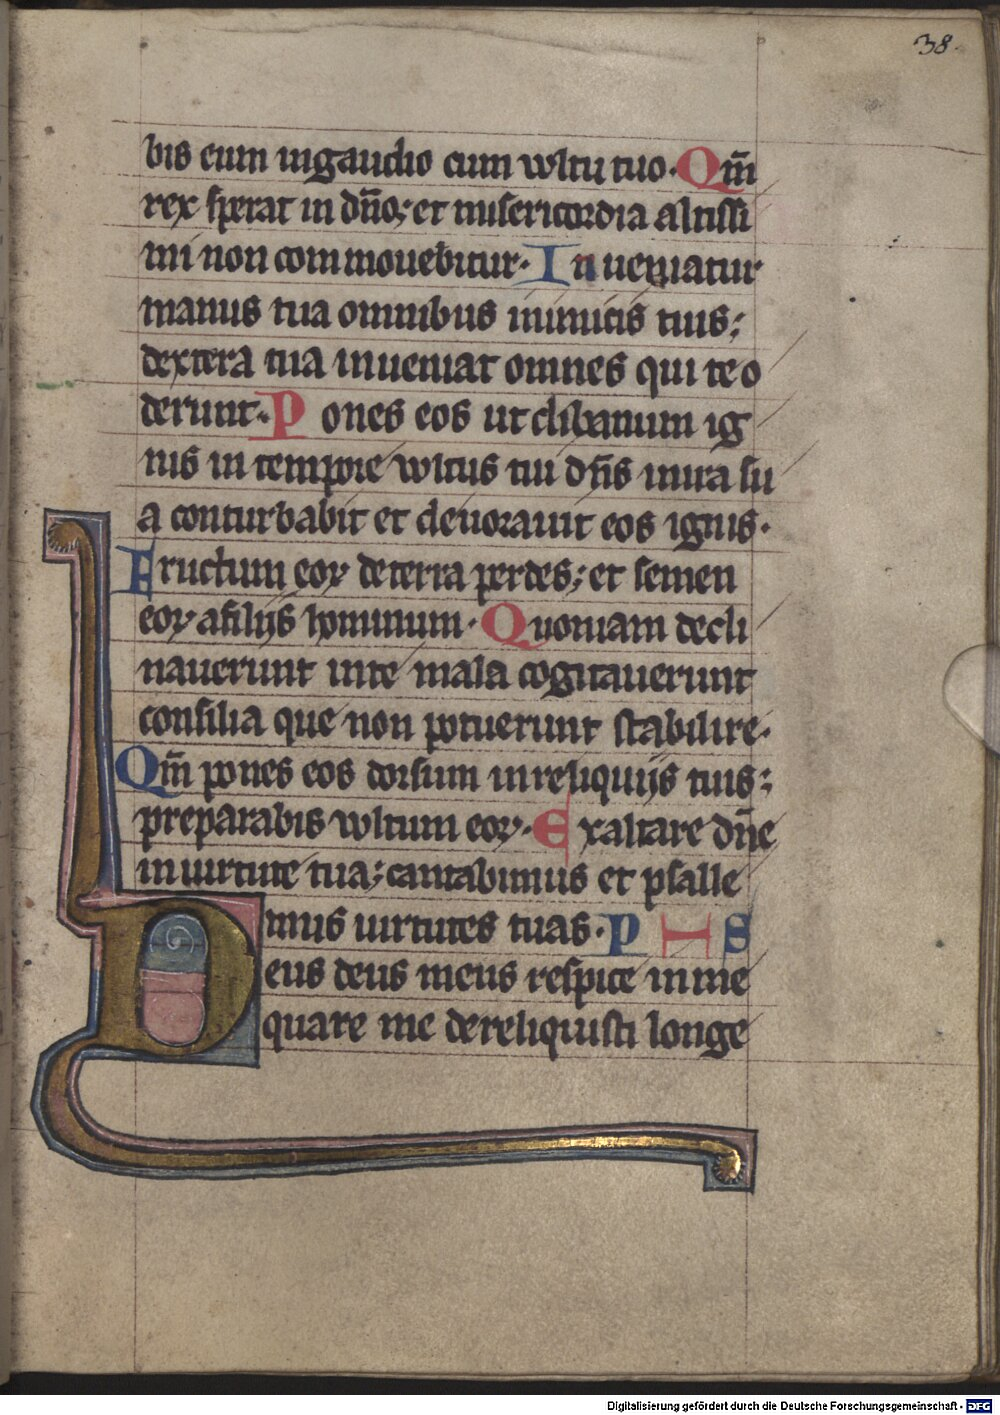 38.
bis eum ingaudio cum wltu tuo. Qm̄
rex sperat in dn̄o; et misericordia altissi
mi non commouebitur. In ueniatur
manus tua omnibus inimicis tuis;
dextera tua inueniat omnes qui te o
derunt. Pones eos ut clibanum ig
nis in tempore wltus tui dn̄s in ira su
a conturbabit et deuorauit eos ignis.
Fructum eoꝝ de terra perdes; et semen
eoꝝ afilijs hominum. Quoniam decli
nauerunt inte mala cogitauerunt
consilia que non potuerunt stabilire.
Qm̄ pones eos dorsum inreliquijs tuis;
preparabis wltum eoꝝ. Exaltare dn̄e
in uirtute tua; cantabimus et psalle
mus uirtutes tuas. P H S
Deus deus meus respice inme
quare me dereliquisti longe
Digitalisierung gefördert durch die Deutsche Forschungsgemeinschaft - DFG